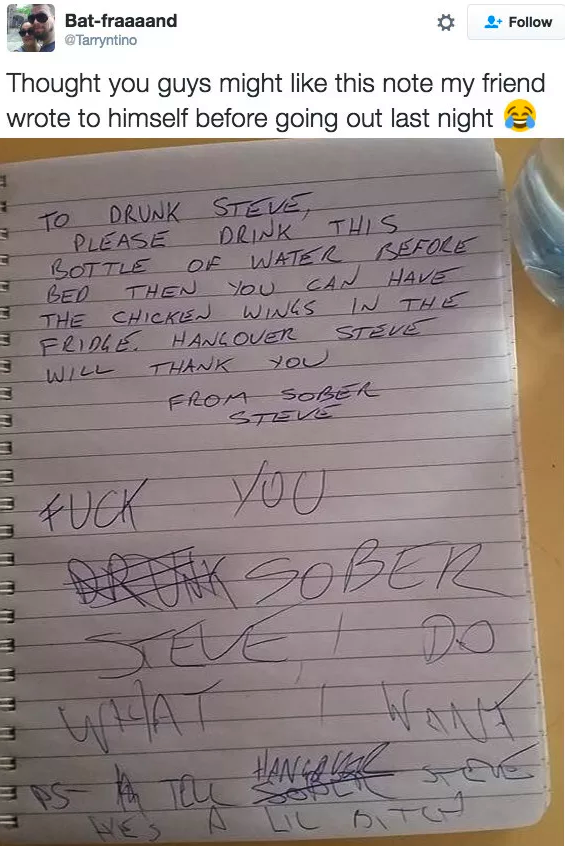 Bat-fraaaand
@Tarryntino
Follow
Thought you guys might like this note my friend
wrote to himself before going out last night 😂
TO DRUNK STEVE,
PLEASE DRINK THIS
BOTTLE OF WATER BEFORE
BED THEN YOU CAN HAVE
THE CHICKEN WINGS IN THE
FRIDGE. HANGOVER STEVE
WILL THANK YOU
FROM SOBER
STEVE
FUCK YOU
DRUNK SOBER
STEVE, I DO
WHAT I WANT
HANGOVER
PS- TELL SOBER STEVE
HE'S A LIL BITCH